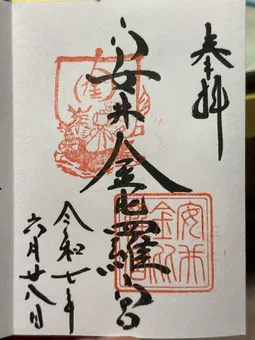 奉拝
安井金比羅宮
令和七年
六月廿八日
安井
金比
羅宮